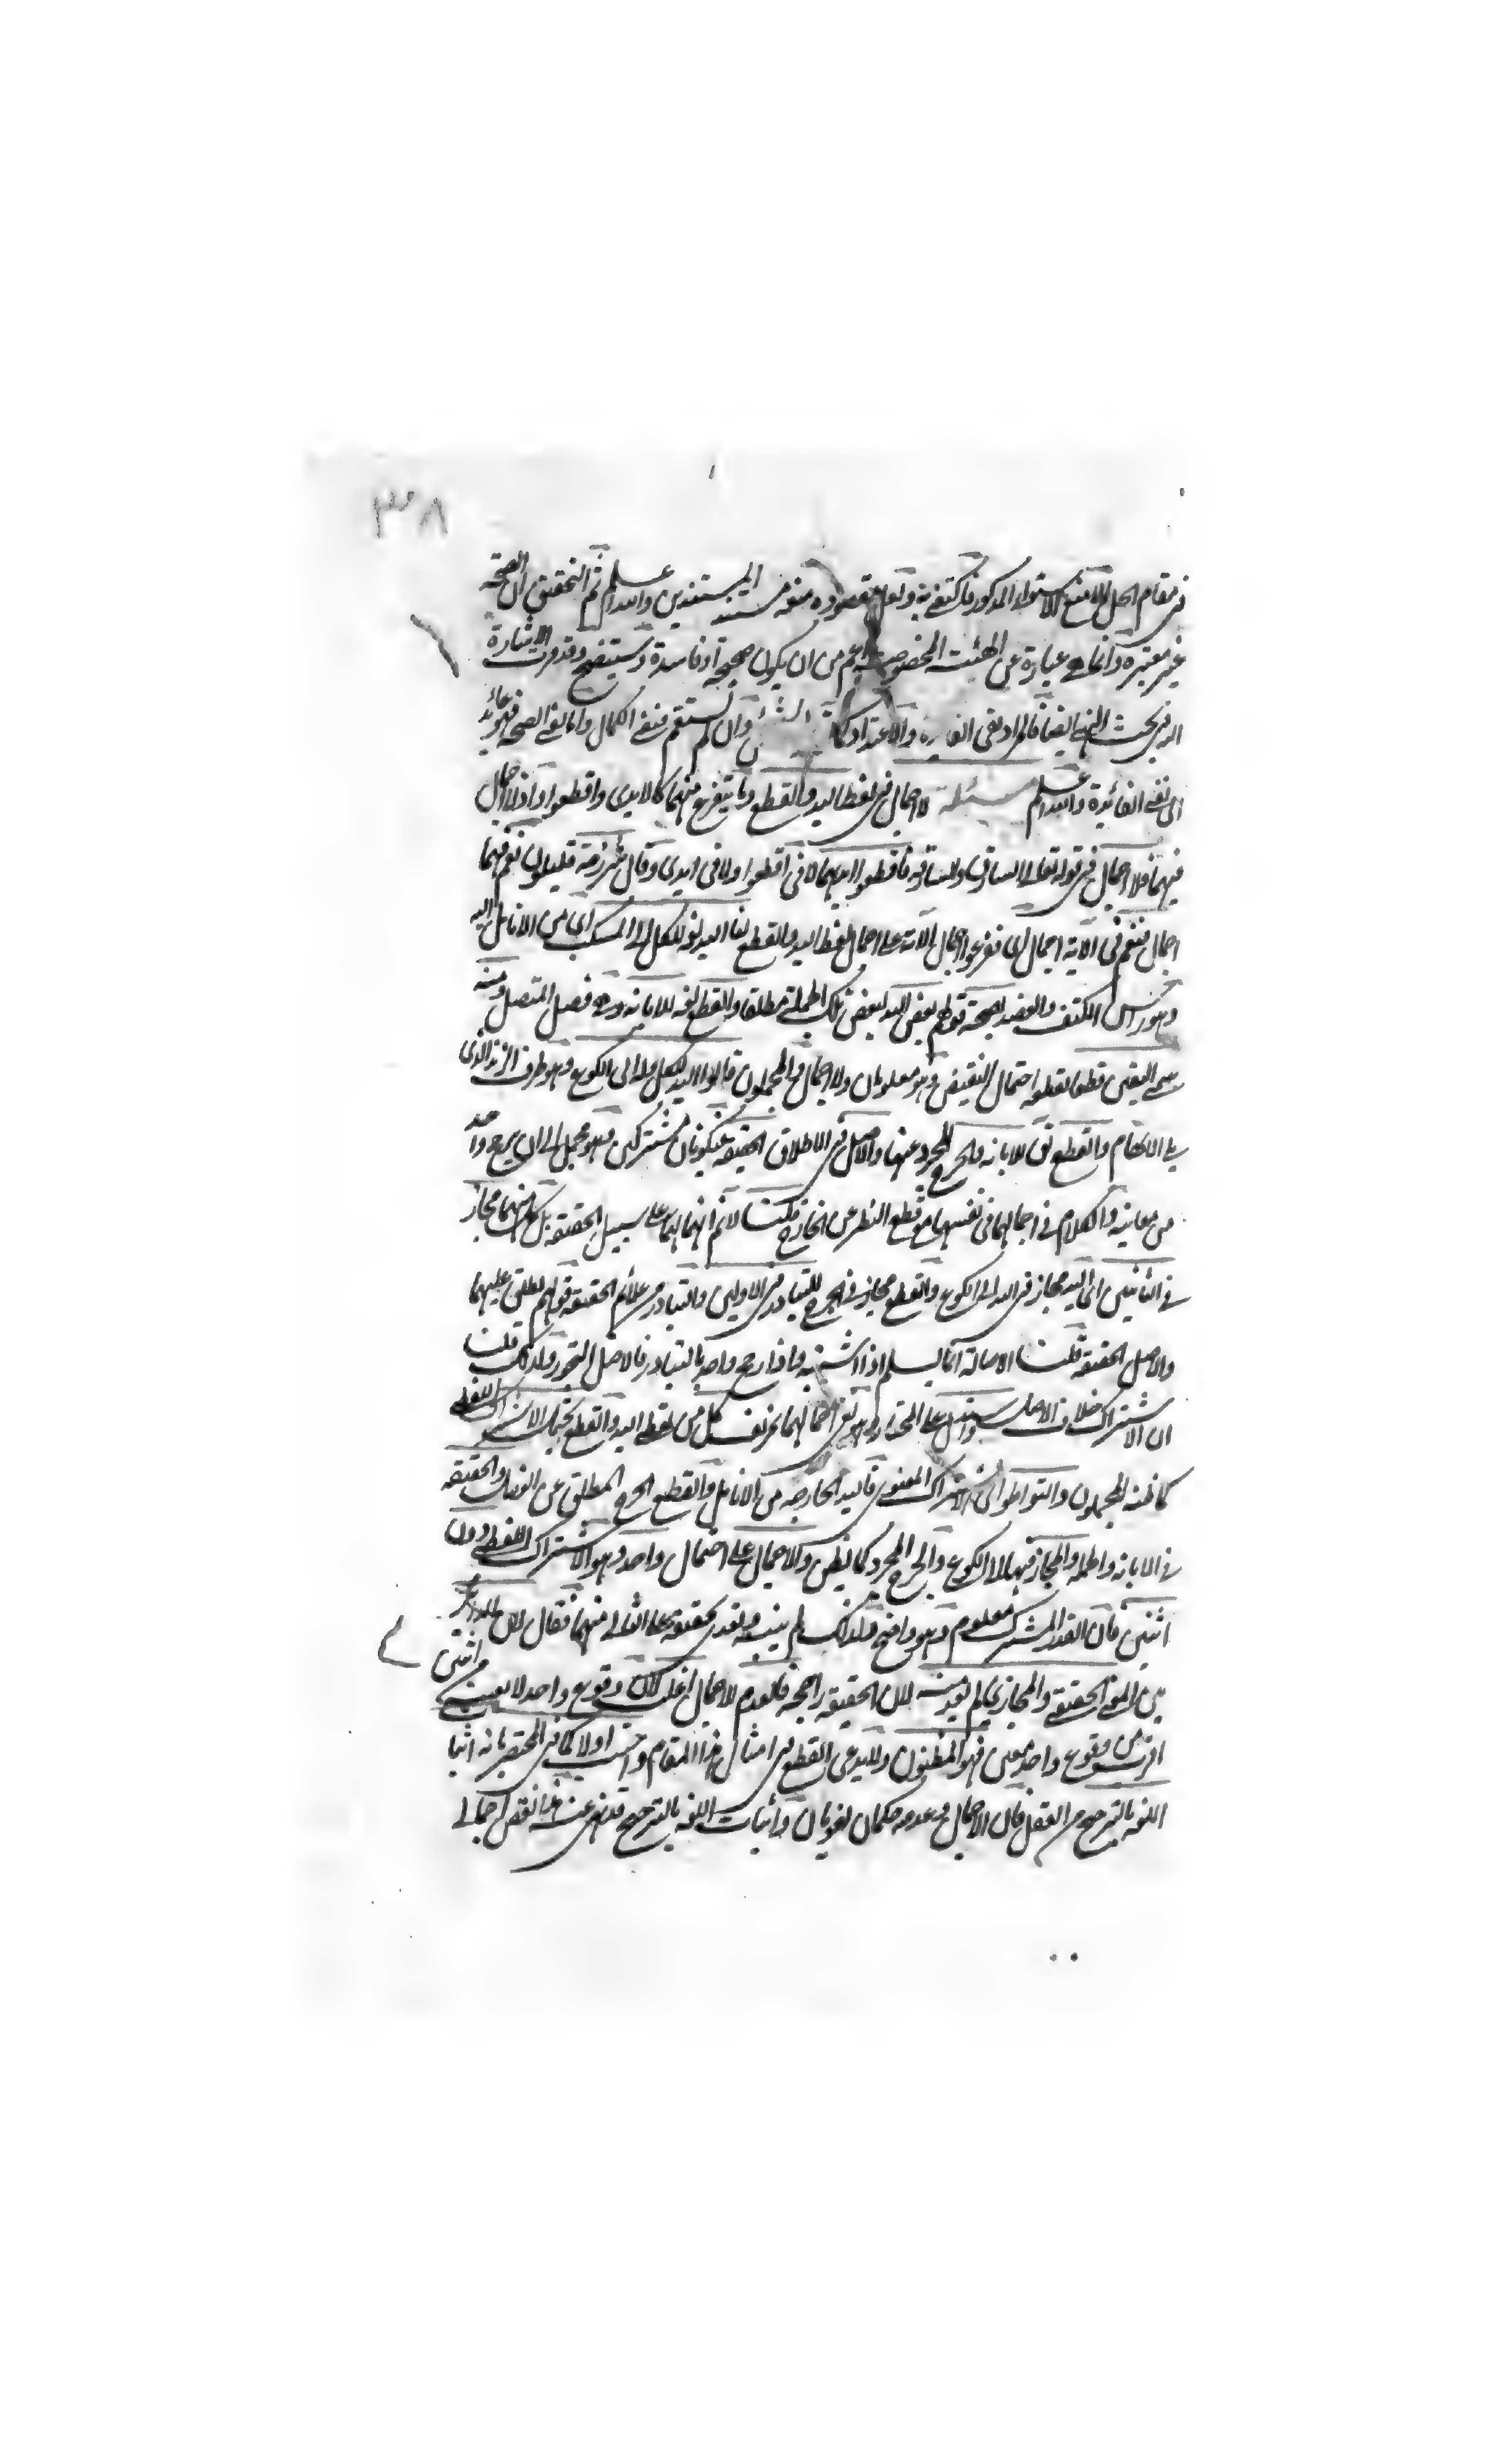 ٣٨
في مقام الحل الا منع الاستواء المذكور فاكتفى به ولعل مقصوده منعه مستند المستندين والله اعلم ثم التحقيق ان الصحة
غير معتبرة وانما هي عبارة عن الهيئة المخصوصة اعم من ان يكون صحيحة او فاسدة وسيتضح وقد مرت الاشارة
اليه في بحث النهي ايضا فالمراد نفي والاعتداد وان لم يستقم فنفي الكمال واما نفي الصحة فهو عائد
الى نفي الفائدة والله اعلم مسئلة لا اجمال في لفظ اليد والقطع وما يتفرع منهما كالايدي واقطعوا واذ لا اجمال
فيهما فلا اجمال في قوله تعالى السارق والسارقة فاقطعوا ايديهما لا في اقطعوا ولا في ايدي وقال شرذمة قليلون نعم فيهما
اجمال فنعم في الآية اجمال اي فرعوا اجمال الآية على اجمال لفظ اليد والقطع لنا اليد لغة للكل الى المنكب اي من الانامل اليه
وهو رأس الكتف والعضد لصحة قولهم بعض اليد لبعض تلك الجملة مطلقا والقطع لغة للابانة وهي فصل المتصل ومنه
سمي اليقين قطعا لقطعه احتمال النقيض وهو معلومان ولا اجمال والمجملون قالوا اليد للكل والى الكوع وهو طرف الزند الذي
يلي الابهام والقطع يق للابانة وللجرح المجرد عنها والاصل في الاطلاق الحقيقة فيكونان مشتركين وهو مجمل الى ان يرجح واحد
من معانيه والكلام في اجمالهما في نفسهما مع قطع النظر عن الخارج قلنا لا نم انهما لهما على سبيل الحقيقة بل كل منهما مجاز
في الثانيين اي اليد مجاز في اليد الى الكوع والقطع مجاز في الجرح للتبادر من الاولين والتبادر من علائم الحقيقة قولهم يطلق عليهما
والاصل الحقيقة قلنا الاصالة انما يسلم اذا اشتبه واذا رجح واحد بالتبادر فالاصل التجوز ولذلك قلنا
ان الاشتراك خلاف الاصل واستدل على المختار وهو نفي اجمالهما بمزيف كل من لفظ اليد والقطع يحتمل الاشتراك اللفظي
كما ظنه المجملون والتواطؤ اي الاشتراك المعنوي فاليد الجارحة من الانامل والقطع الجرح المطلق عن الفصل والحقيقة
في الابانة والجملة والمجاز فيهما الى الكوع والجرح المجرد كما يظن والاجمال على احتمال واحد وهو الاشتراك اللفظي دون
اثنين فان القدر المشترك معلوم وهو واضح فلذلك لم يبينه وتعدى لحقيقة على الثالث منهما فقال لان
بين المعنى الحقيقي والمجازي ما لم يفد لان الحقيقة راجحة فالعدم لاجمال اغلب لان وقوع واحد لا بعينه من اثنين
اقرب من وقوع واحد معين فهو المظنون ولا يدعى القطع في امثال هذا المقام واجيب اولا كما في المختصر بانه اثبات
اللغة بالترجيح من العقل فان الاجمال وعدمه حكمان لغويان واثبات اللغة بالترجيح قد نهي عنه هذا نقض اجمالي